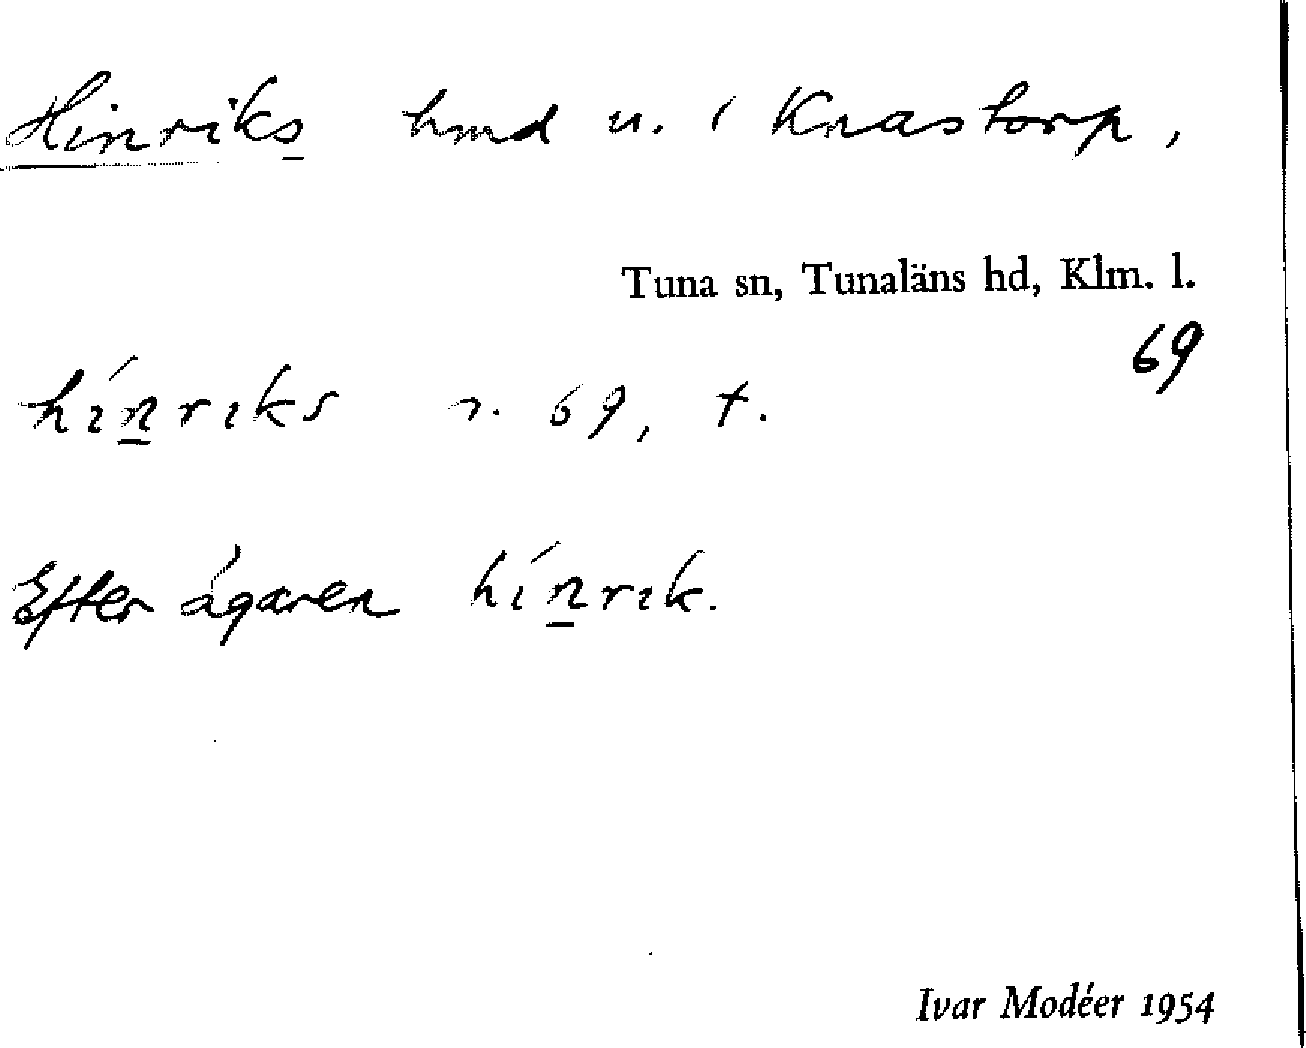 Hinriks hmd u. i Knastorp,
Tuna sn, Tunaläns hd, Klm. l.
69
hı́nrıks r. 69, t.
Efter ägaren hı́nrık.
Ivar Modéer 1954